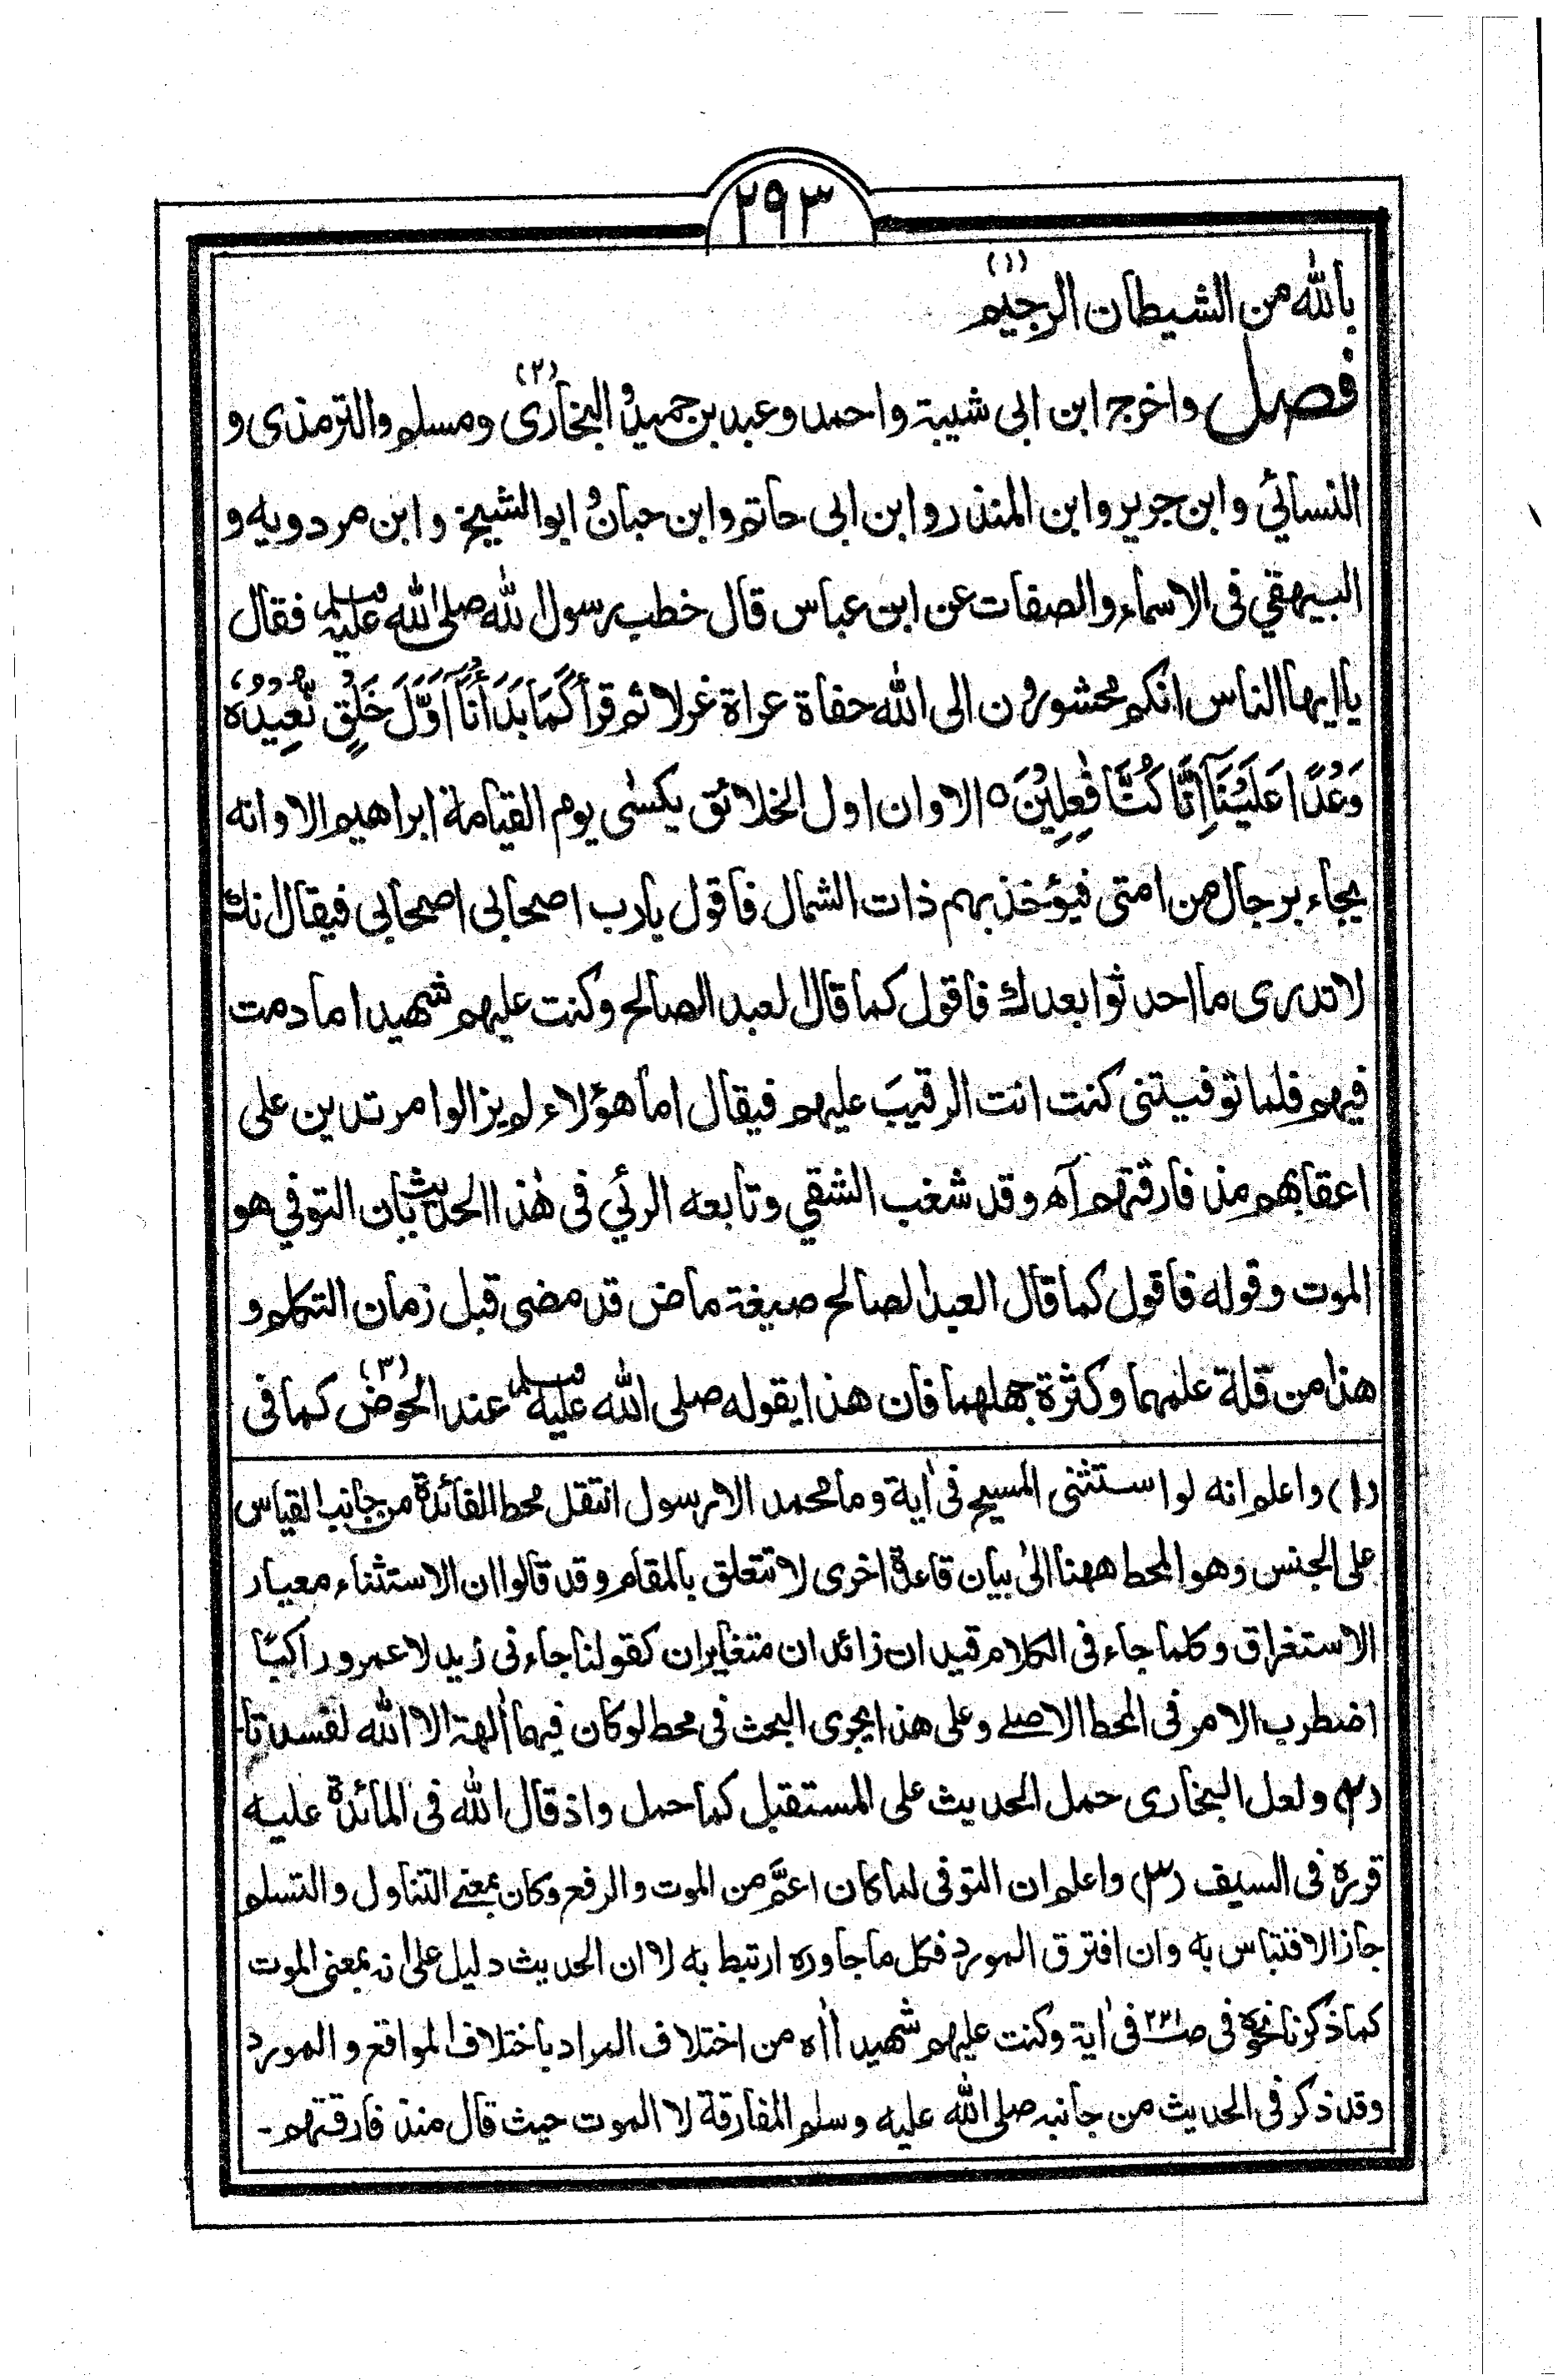 ٢٩٣
بالله من الشيطان الرجيم (١)
فصل واخرج ابن ابى شيبة واحمد وعبد بن حميد والبخارى (٢) ومسلم والترمذى و
النسائي وابن جرير وابن المنذر وابن ابى حاتم وابن حبان و ابوالشيخ وابن مردويه و
البيهقي فى الاسماء والصفات عن ابن عباس قال خطب رسول الله صلى الله عليه وسلم فقال
يا ايها الناس انكم محشورون الى الله حفاة عراة غرلا ثم قرأ كَمَا بَدَأْنَآ اَوَّلَ خَلْقٍ نُّعِيْدُهٗ
وَعْدًا عَلَيْنَا اِنَّا كُنَّا فٰعِلِيْنَ ه الا وان اول الخلائق يكسٰى يوم القيامة ابراهيم الا وانه
يجاء برجال من امتى فيؤخذ بهم ذات الشمال فاقول يارب اصحابى اصحابى فيقال انك
لا تدرى ما احدثوا بعدك فاقول كما قال العبد الصالح وكنت عليهم شهيدا ما دمت
فيهم فلما توفيتنى كنت انت الرقيبَ عليهم فيقال اما هؤلاء لم يزالوا مرتدين على
اعقابهم منذ فارقتهم آه وقد شغب الشقي وتابعه الرئي فى هٰذا الحديث بان التوفي هو
الموت وقوله فاقول كما قال العبد الصالح صيغة ماض قد مضى قبل زمان التكلم و
هذا من قلة علمهما وكثرة جهلهما فان هذا يقوله صلى الله عليه وسلم عند الحوض (٣) كما فى
(١) واعلم انه لو استثنى المسيح فى اٰية وما محمد الا رسول انتقل محط الفائدة من جانب القياس
على الجنس وهو المحط ههنا الىٰ بيان قاعدة اخرى لا تتعلق بالمقام وقد قالوا ان الاستثناء معيار
الاستغراق وكلما جاء فى الكلام قيدان زائدان متغايران كقولنا جاءنى زيد لا عمرو راكبًا
اضطرب الامر فى المحط الاصلے وعلى هذا يجرى البحث فى محط لوكان فيهما اٰلهة الا الله لفسدتا-
(٢) ولعل البخارى حمل الحديث على المستقبل كما حمل واذ قال الله فى المائدة عليه
قرره فى السيف (٣) واعلم ان التوفى لما كان اعمَّ من الموت والرفع وكان بمعنے التناول والتسلم
جاز الاقتباس به وان افترق المورد فكل ما جاوره ارتبط به لا ان الحديث دليل على انه بمعنى الموت
كما ذكرنا نحوه فى صـ٢٣١ فى اٰية وكنت عليهم شهيدا اٰه من اختلاف المراد باختلاف المواقع والمورد
وقد ذكر فى الحديث من جانبه صلى الله عليه وسلم المفارقة لا الموت حيث قال منذ فارقتهم-